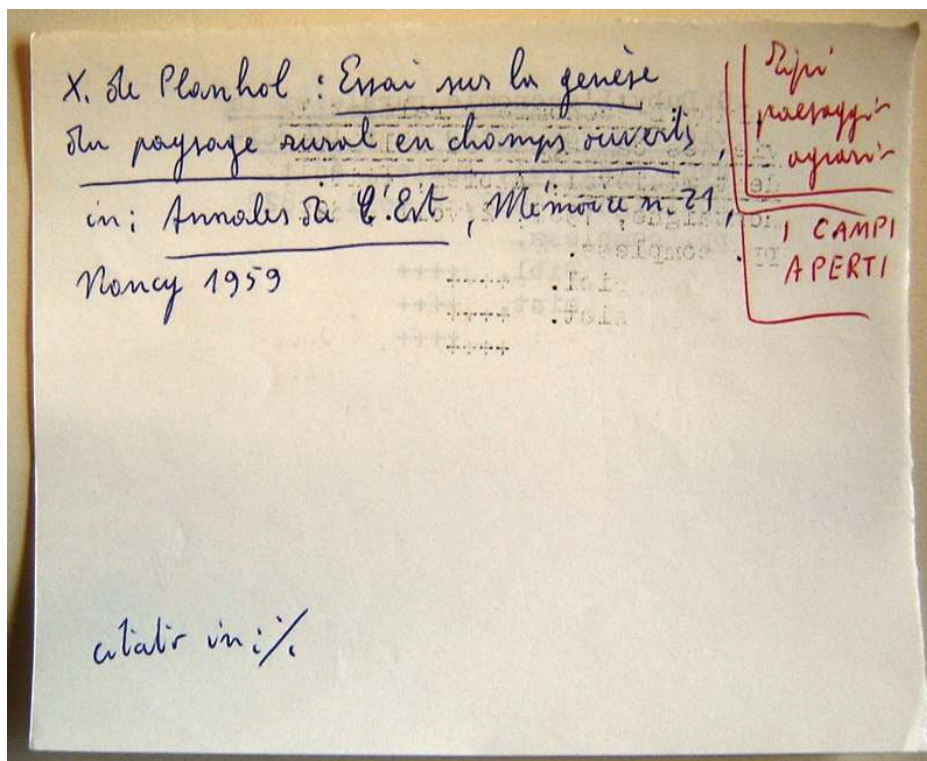 X. de Planhol : Essai sur la genèse
du paysage rural en champs ouverts,
in: Annales de l'Est, Mémoire n. 21,
Nancy 1959
Tipi
paesaggi
agrari
I CAMPI
APERTI
citato in: %